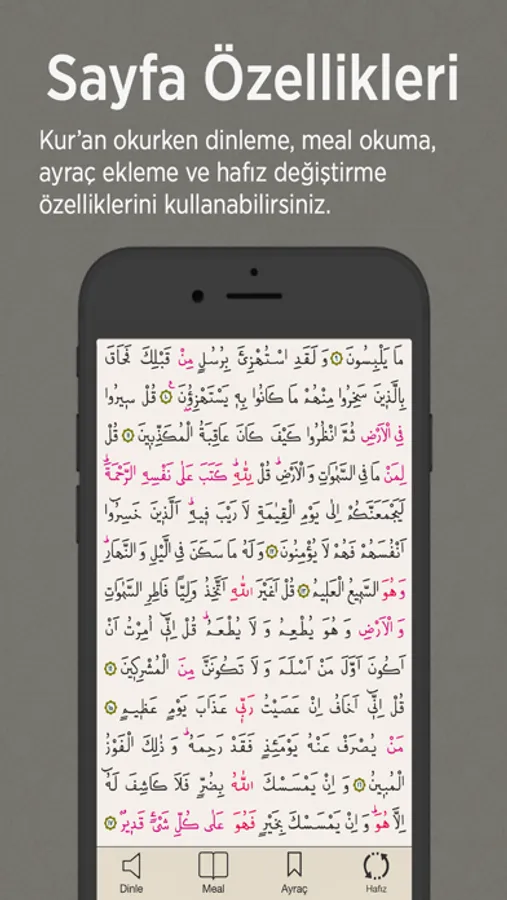 Sayfa Özellikleri
Kur’an okurken dinleme, meal okuma,
ayraç ekleme ve hafız değiştirme
özelliklerini kullanabilirsiniz.
مَا يَلْبِسُونَ ﴿٩﴾ وَلَقَدِ اسْتُهْزِئَ بِرُسُلٍ مِنْ قَبْلِكَ فَحَاقَ
بِالَّذِينَ سَخِرُوا مِنْهُمْ مَا كَانُوا بِهِ يَسْتَهْزِؤُنَ ﴿١٠﴾ قُلْ سِيرُوا
فِي الْاَرْضِ ثُمَّ انْظُرُوا كَيْفَ كَانَ عَاقِبَةُ الْمُكَذِّبِينَ ﴿١١﴾ قُلْ
لِمَنْ مَا فِي السَّمٰوَاتِ وَالْاَرْضِۜ قُلْ لِلّٰهِۜ كَتَبَ عَلٰى نَفْسِهِ الرَّحْمَةَۜ
لَيَجْمَعَنَّكُمْ اِلٰى يَوْمِ الْقِيٰمَةِ لَا رَيْبَ فِيهِۜ اَلَّذِينَ خَسِرُوا
اَنْفُسَهُمْ فَهُمْ لَا يُؤْمِنُونَ ﴿١٢﴾ وَلَهُ مَا سَكَنَ فِي الَّيْلِ وَالنَّهَارِۜ
وَهُوَ السَّمِيعُ الْعَلِيمُ ﴿١٣﴾ قُلْ اَغَيْرَ اللّٰهِ اَتَّخِذُ وَلِيًّا فَاطِرِ السَّمٰوَاتِ
وَالْاَرْضِ وَهُوَ يُطْعِمُ وَلَا يُطْعَمُۜ قُلْ اِنِّي اُمِرْتُ اَنْ
اَكُونَ اَوَّلَ مَنْ اَسْلَمَ وَلَا تَكُونَنَّ مِنَ الْمُشْرِكِينَ ﴿١٤﴾
قُلْ اِنِّي اَخَافُ اِنْ عَصَيْتُ رَبِّي عَذَابَ يَوْمٍ عَظِيمٍ ﴿١٥﴾
مَنْ يُصْرَفْ عَنْهُ يَوْمَئِذٍ فَقَدْ رَحِمَهُۜ وَذٰلِكَ الْفَوْزُ
الْمُبِينُ ﴿١٦﴾ وَاِنْ يَمْسَسْكَ اللّٰهُ بِضُرٍّ فَلَا كَاشِفَ لَهُ
اِلَّا هُوَۜ وَاِنْ يَمْسَسْكَ بِخَيْرٍ فَهُوَ عَلٰى كُلِّ شَيْءٍ قَدِيرٌ ﴿١٧﴾
Dinle
Meal
Ayraç
Hafız